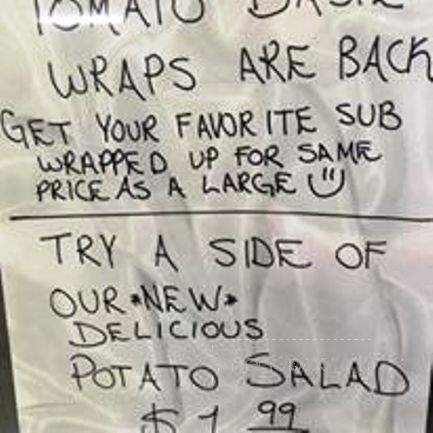 TOMATO BASIL
WRAPS ARE BACK
GET YOUR FAVORITE SUB
WRAPPED UP FOR SAME
PRICE AS A LARGE
TRY A SIDE OF
OUR *NEW*
DELICIOUS
POTATO SALAD
$1 99